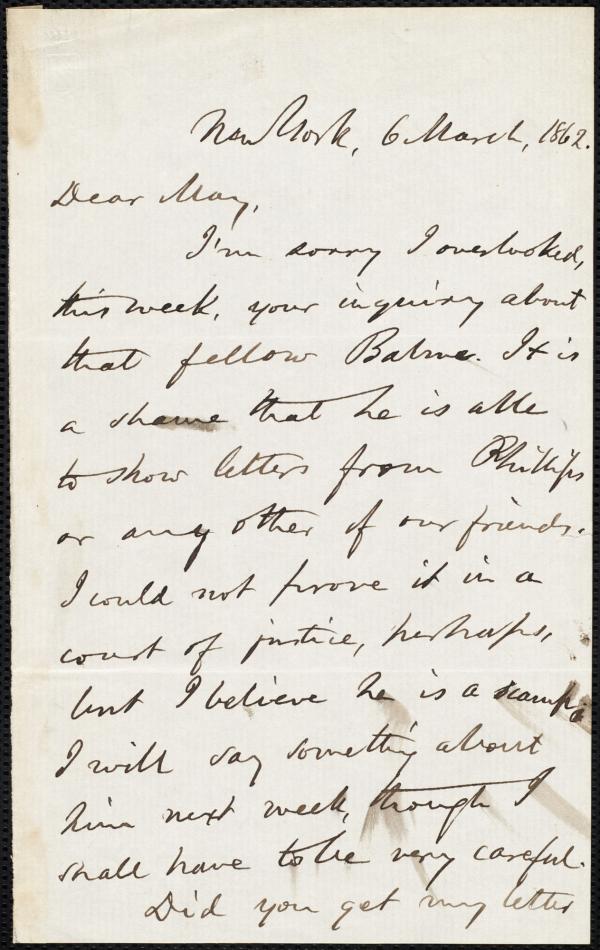 New York, 6 March, 1862.
Dear May,
I'm sorry I overlooked,
this week, your inquiry about
that fellow Balme. It is
a shame that he is able
to show letters from Phillips
or any other of our friends.
I could not prove it in a
court of justice, perhaps,
but I believe he is a scamp.
I will say something about
him next week, though I
shall have to be very careful.
Did you get my letter